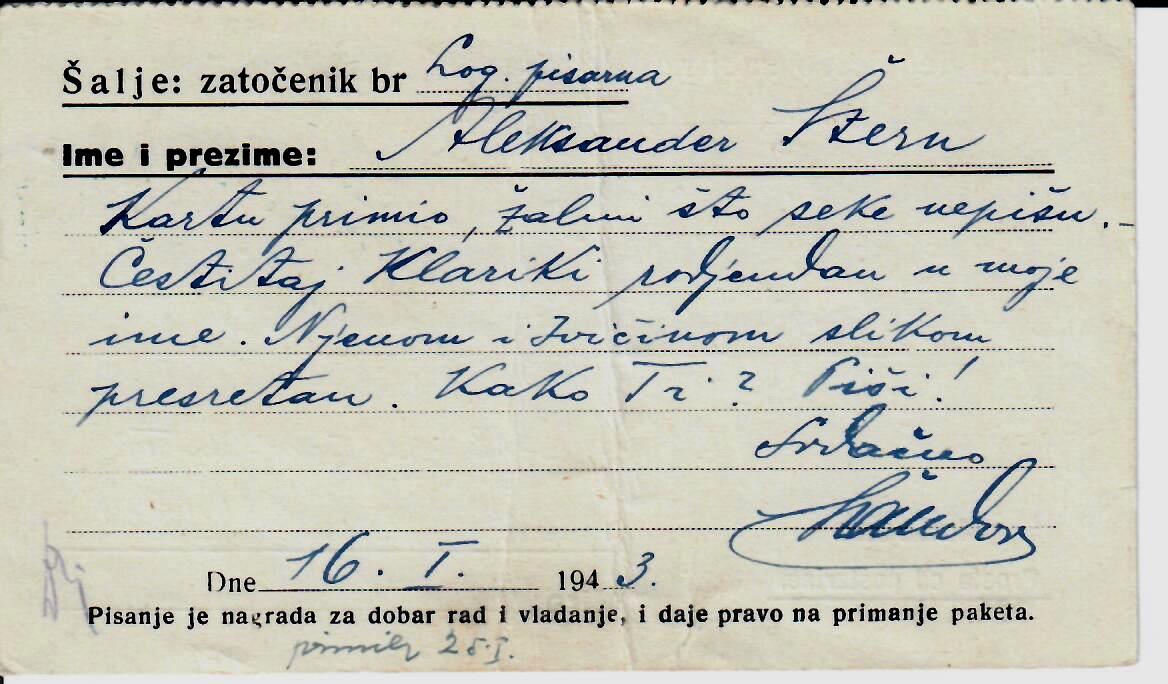 Šalje: zatočenik br Log. pisarna
Ime i prezime: Aleksander Štern
Kartu primio, žalim što seke nepišu. –
Čestitaj Klariki rodjendan u moje
ime. Njenom i Ivičinom slikom
presretan. Kako Ti? Piši!
Srdačno
Šandor
Dne 16. I. 1943.
Pisanje je nagrada za dobar rad i vladanje, i daje pravo na primanje paketa.
25.I.